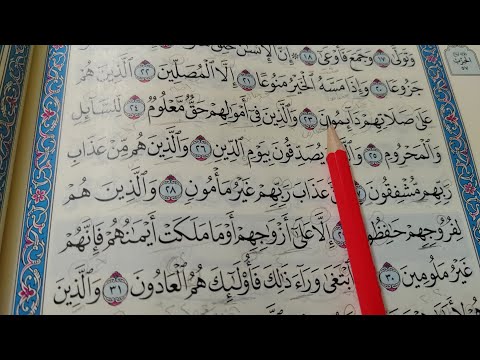 وَتَوَلَّىٰ ١٧ وَجَمَعَ فَأَوْعَىٰٓ ١٨ ۞ إِنَّ ٱلْإِنسَٰنَ خُلِقَ
جَزُوعًا ٢٠ وَإِذَا مَسَّهُ ٱلْخَيْرُ مَنُوعًا ٢١ إِلَّا ٱلْمُصَلِّينَ ٢٢ ٱلَّذِينَ هُمْ
عَلَىٰ صَلَاتِهِمْ دَآئِمُونَ ٢٣ وَٱلَّذِينَ فِىٓ أَمْوَٰلِهِمْ حَقٌّ مَّعْلُومٌ ٢٤ لِّلسَّآئِلِ
وَٱلْمَحْرُومِ ٢٥ وَٱلَّذِينَ يُصَدِّقُونَ بِيَوْمِ ٱلدِّينِ ٢٦ وَٱلَّذِينَ هُم مِّنْ عَذَابِ
رَبِّهِم مُّشْفِقُونَ ٢٧ عَذَابَ رَبِّهِمْ غَيْرُ مَأْمُونٍ ٢٨ وَٱلَّذِينَ هُمْ
لِفُرُوجِهِمْ حَٰفِظُونَ إِلَّا عَلَىٰٓ أَزْوَٰجِهِمْ أَوْ مَا مَلَكَتْ أَيْمَٰنُهُمْ فَإِنَّهُمْ
غَيْرُ مَلُومِينَ ٣٠ ٱبْتَغَىٰ وَرَآءَ ذَٰلِكَ فَأُو۟لَٰٓئِكَ هُمُ ٱلْعَادُونَ ٣١ وَٱلَّذِينَ